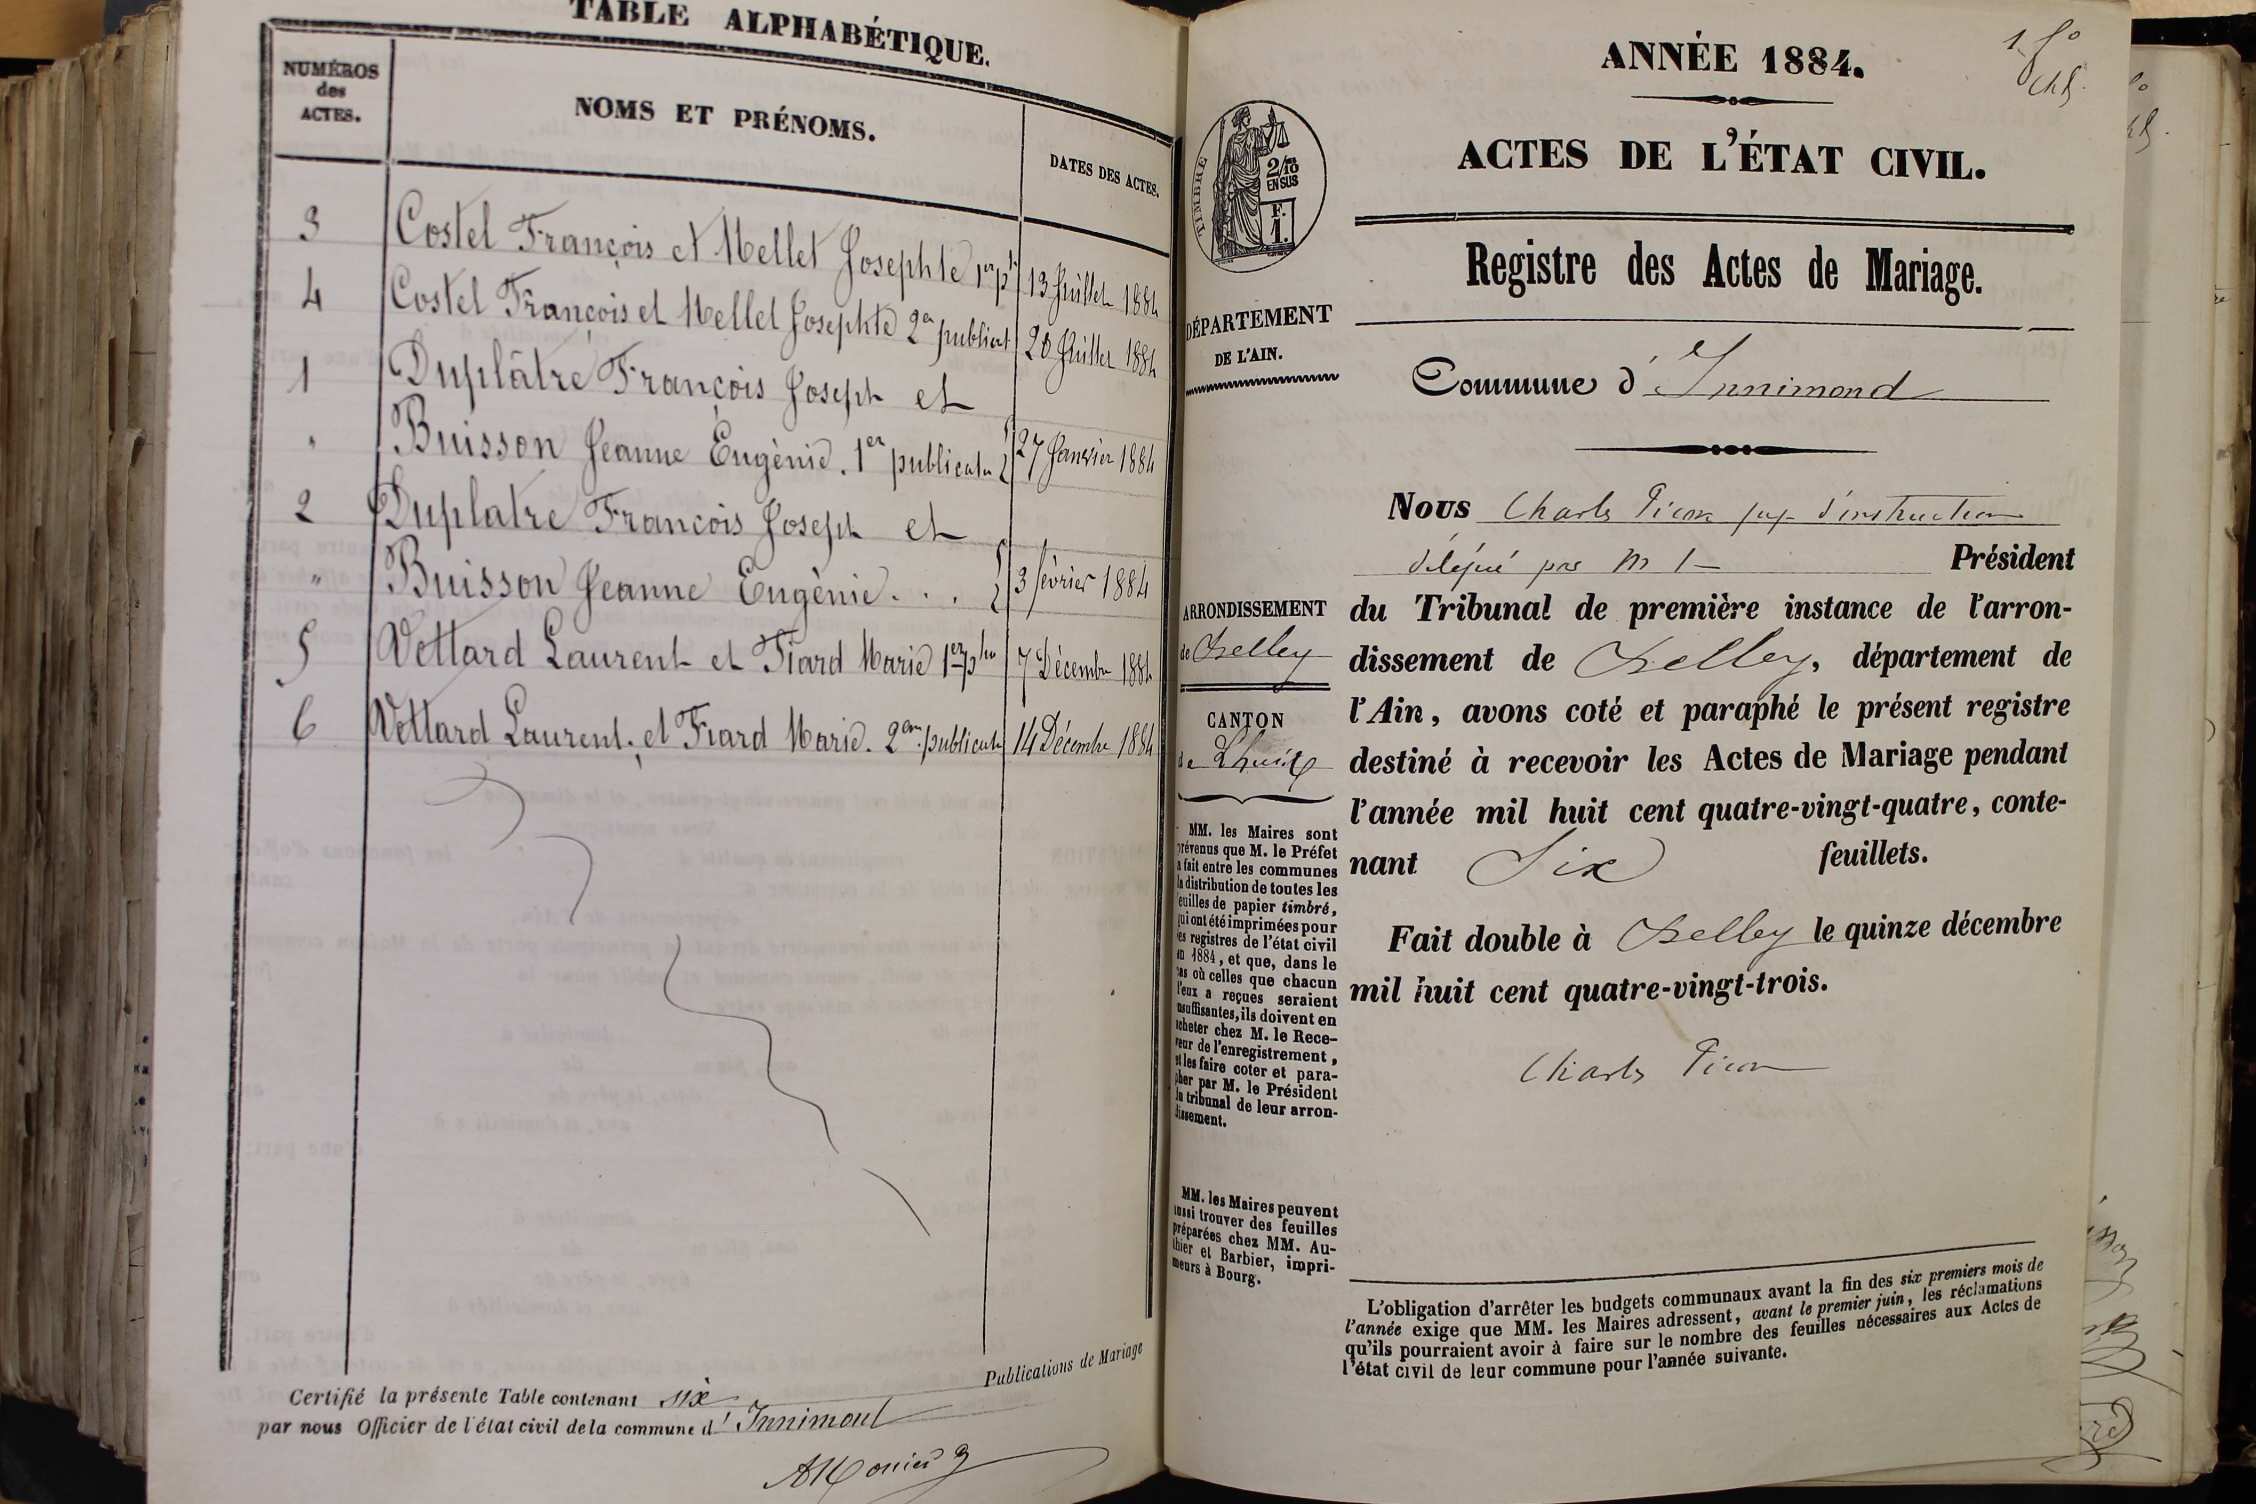 TABLE ALPHABÉTIQUE.
NUMÉROS
des
ACTES.
NOMS ET PRÉNOMS.
DATES DES ACTES.
3 Costel François et Mellet Josephte 1er p 13 Juillet 1884
4 Costel François et Mellet Josephte 2e publicat 20 Juillet 1884
1 Duplâtre François Joseph et
" Buisson Jeanne Eugènie. 1er publicatn 27 Janvier 1884
2 Duplatre François Joseph et
" Buisson Jeanne Eugènie... 3 février 1884
5 Vettard Laurent et Fiard Marie 1er 7 Décembre 1884
6 Vettard Laurent. et Fiard Marie. 2em publicatn 14 Décembre 1884
Certifié la présente Table contenant six Publications de Mariage
par nous Officier de l'état civil de la commune d' Innimont
1 fo
ANNÉE 1884.
ACTES DE L'ÉTAT CIVIL.
TIMBRE
2/10
EN SUS
F.
1.
Registre des Actes de Mariage.
DÉPARTEMENT
DE L'AIN.
Commune d' Innimond
Nous Charles Picon juge d'instruction
délégué par Mr le Président
du Tribunal de première instance de l'arron-
dissement de Belley, département de
l'Ain, avons coté et paraphé le présent registre
destiné à recevoir les Actes de Mariage pendant
l'année mil huit cent quatre-vingt-quatre, conte-
nant Six feuillets.
Fait double à Belley le quinze décembre
mil huit cent quatre-vingt-trois.
Charles Picon
ARRONDISSEMENT
de Belley
CANTON
de Lhuis
MM. les Maires sont
prévenus que M. le Préfet
a fait entre les communes
la distribution de toutes les
feuilles de papier timbré,
qui ont été imprimées pour
les registres de l'état civil
en 1884, et que, dans le
cas où celles que chacun
d'eux a reçues seraient
insuffisantes, ils doivent en
acheter chez M. le Rece-
veur de l'enregistrement,
et les faire coter et para-
pher par M. le Président
du tribunal de leur arron-
dissement.
MM. les Maires peuvent
aussi trouver des feuilles
préparées chez MM. Au-
thier et Barbier, impri-
meurs à Bourg.
L'obligation d'arrêter les budgets communaux avant la fin des six premiers mois de
l'année exige que MM. les Maires adressent, avant le premier juin, les réclamations
qu'ils pourraient avoir à faire sur le nombre des feuilles nécessaires aux Actes de
l'état civil de leur commune pour l'année suivante.